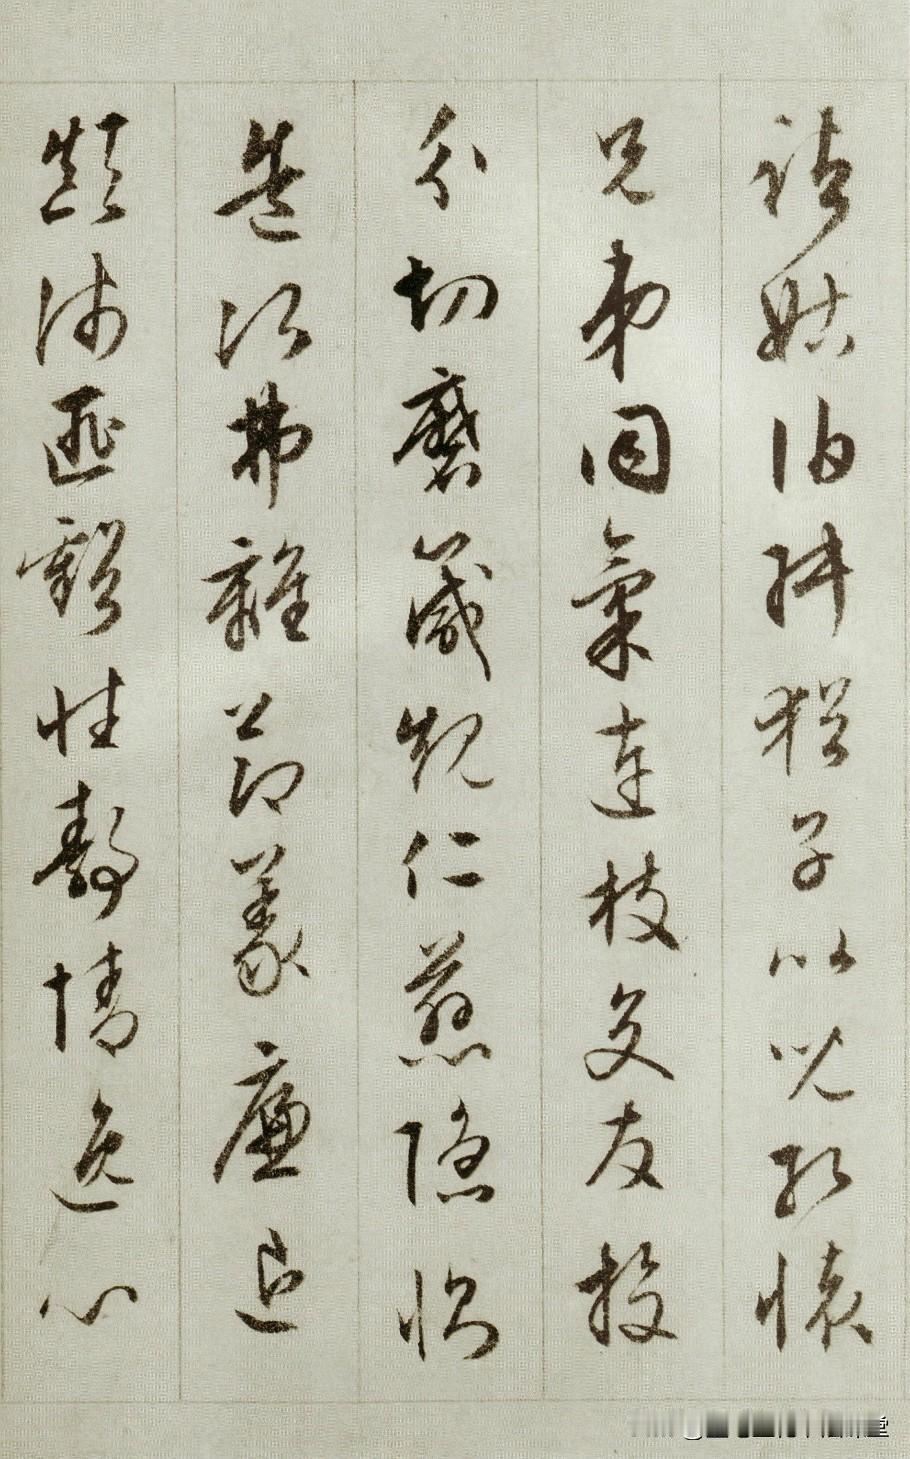 諸姑伯叔猶子比兒孔懷
兄弟同氣連枝交友投
分切磨箴規仁慈隱惻
造次弗離節義廉退
顛沛匪虧性靜情逸心